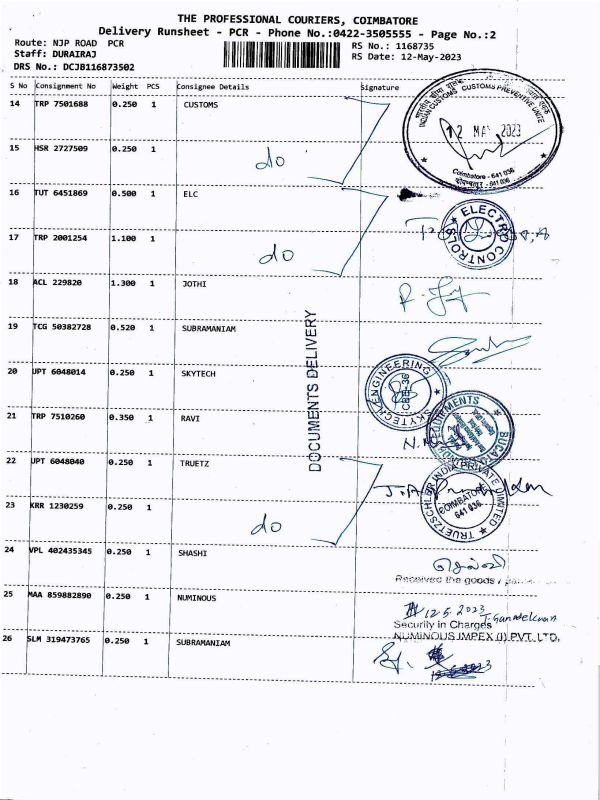 THE PROFESSIONAL COURIERS, COIMBATORE
Delivery Runsheet - PCR - Phone No.:0422-3505555 - Page No.:2
Route: NJP ROAD PCR
Staff: DURAIRAJ
DRS No.: DCJB116873502
RS No.: 1168735
RS Date: 12-May-2023
S No Consignment No Weight PCS Consignee Details Signature
14 TRP 7501688 0.250 1 CUSTOMS
INDIAN CUSTOMS CUSTOMS PREVENTIVE UNIT
12 MAY 2023
Coimbatore - 641 036
15 HSR 2727509 0.250 1 do
16 TUT 6451869 0.500 1 ELC
ELECTRO CONTROLS
17 TRP 2001254 1.100 1 do
18 ACL 229820 1.300 1 JOTHI
19 TCG 50382728 0.520 1 SUBRAMANIAM
DOCUMENTS DELIVERY
20 UPT 6048014 0.250 1 SKYTECH
SKYTECH ENGINEERING
CBE-36
21 TRP 7510260 0.350 1 RAVI
22 UPT 6048040 0.250 1 TRUETZ
TRUETZSCHLER INDIA PRIVATE LIMITED
COIMBATORE
641 036
23 KRR 1230259 0.250 1 do
24 VPL 402435345 0.250 1 SHASHI
Received the goods /
25 MAA 859882890 0.250 1 NUMINOUS
12.5.2023
Security in Charges
NUMINOUS IMPEX (I) PVT. LTD.
26 SLM 319473765 0.250 1 SUBRAMANIAM